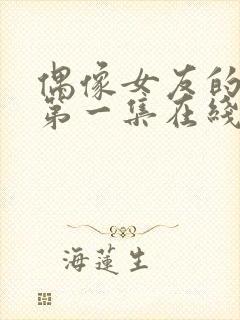 偶像女友的
第一集在綫
海蓮生